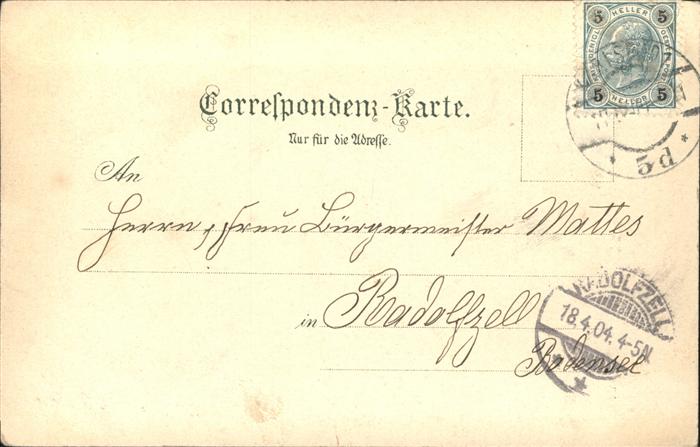 5 HELLER 5
5 HELLER 5
Correspondenz-Karte.
Nur für die Adresse.
An
Herrn u. Frau Bürgermeister Mattes
in Radolfzell
Bodensee
RADOLFZELL
18.4.04. 4-5N